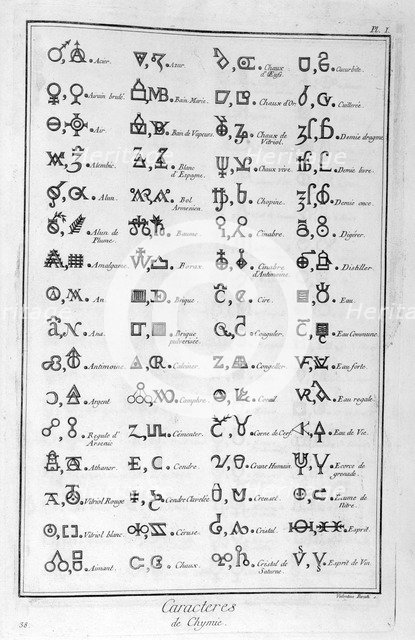 Pl. I.
Acier.
Azur.
Chaux d'Œufs
Cucurbite.
Airain brulé.
Bain Marie.
Chaux d'Or.
Cuillerée.
Air.
Bain de Vapeurs.
Chaux de Vitriol.
Demie dragme.
Alembic.
Blanc d'Espagne.
Chaux vive.
Demie livre.
Alun.
Bol Armenien.
Chopine.
Demie once.
Alun de Plume.
Baume.
Cinabre.
Digérer.
Amalgame.
Borax.
Cinabre d'Antimoine.
Distiller.
An.
Brique.
Cire.
Eau.
Ana.
Brique pulverisée.
Coaguler.
Eau Commune.
Antimoine.
Calciner.
Congeller.
Eau forte.
Argent.
Camphre.
Corail.
Eau regale.
Regule d'Arsenic
Cémenter.
Corne de Cerf.
Eau de Vie.
Athanor.
Cendre.
Crane Humain.
Ecorce de grenade.
Vitriol Rouge.
Cendre Clavelée.
Creuset.
Ecume de Nitre.
Vitriol blanc.
Céruse.
Cristal.
Esprit.
Aimant.
Chaux.
Cristal de Saturne.
Esprit de Vin.
38.
Caracteres
de Chymie.
Heritage